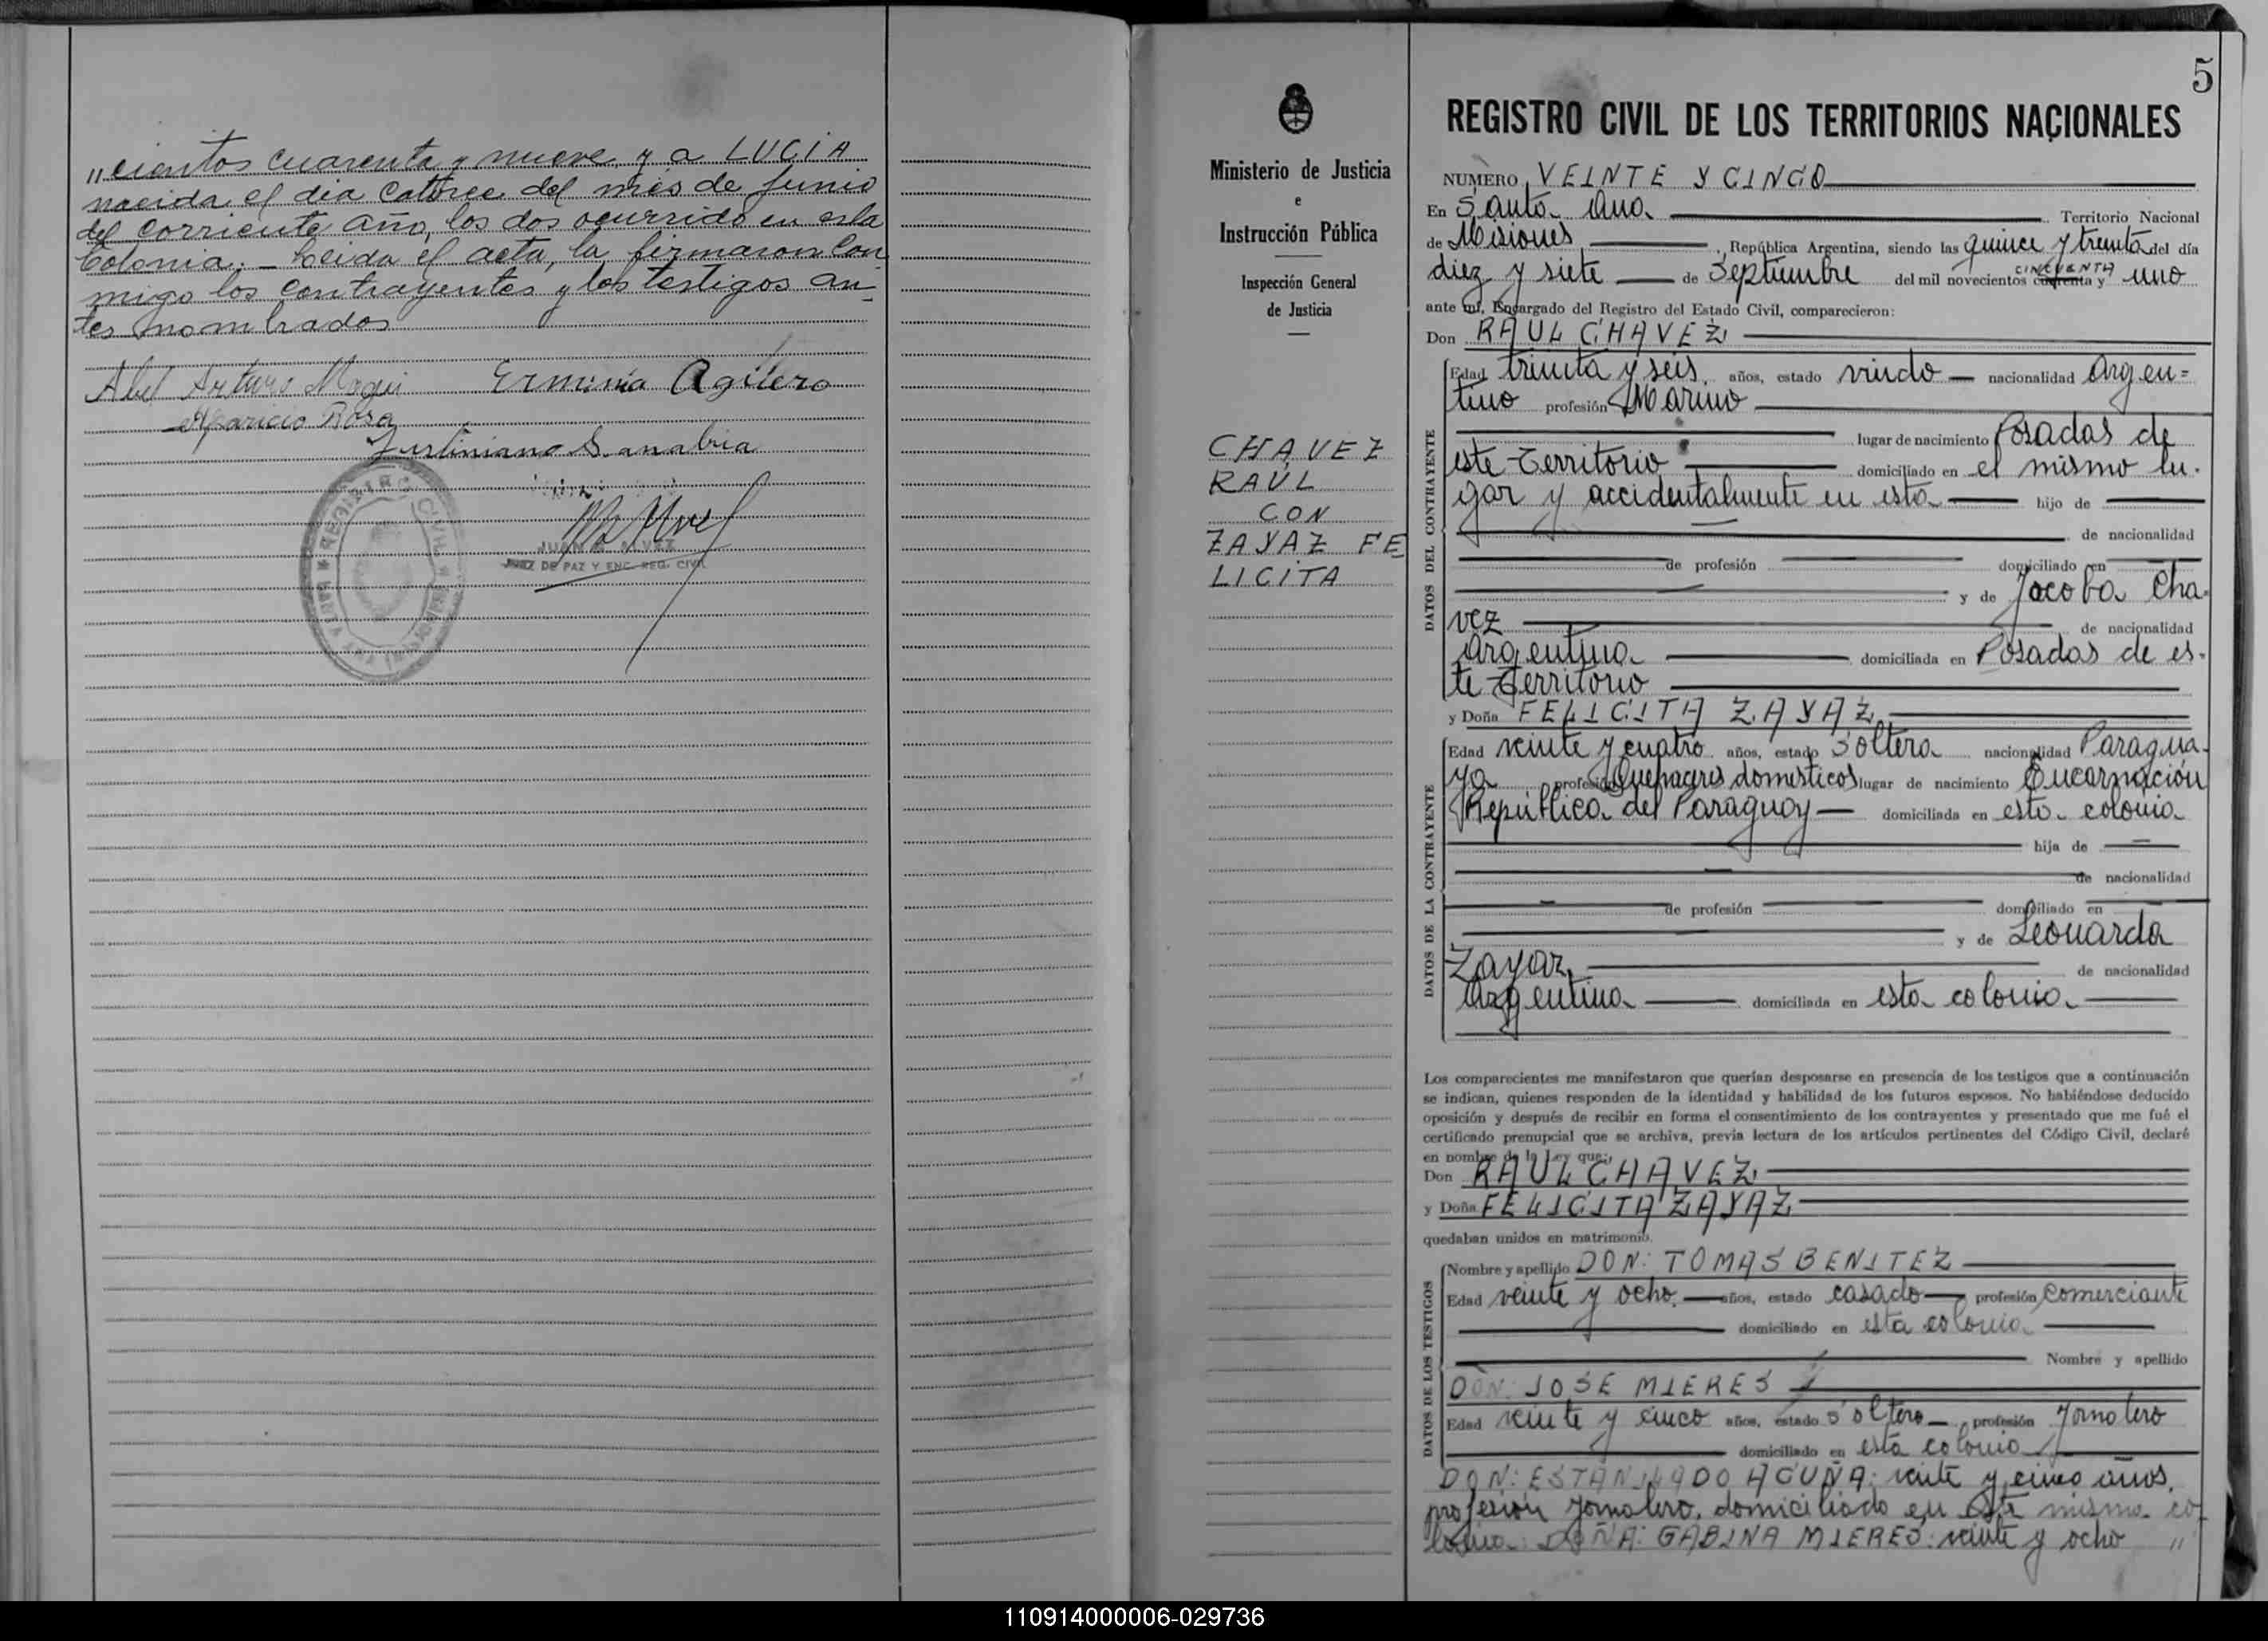 "cientos cuarenta y nueve, y a LUCIA
nacida el día catorce del mes de Junio
del corriente año, los dos ocurrido en esta
Colonia. – Leida el acta, la firmaron con
migo los contrayentes y los testigos an-
tes nombrados
Abel Arturo Ermina Agilero
Aparicio Rosa
Justiniano Sanabria
JUAN ALVEZ
JUEZ DE PAZ Y ENC. REG. CIVIL
REGISTRO CIVIL
Ministerio de Justicia
e
Instrucción Pública
Inspección General
de Justicia
CHAVEZ
RAÚL
CON
ZAYAZ FE
LICITA
5
REGISTRO CIVIL DE LOS TERRITORIOS NACIONALES
NÚMERO VEINTE Y CINCO
En Santa Ana Territorio Nacional
de Misiones, República Argentina, siendo las quince y treinta del día
diez y siete de Septiembre del mil novecientos cuarenta y CINCUENTA uno
ante mí, Encargado del Registro del Estado Civil, comparecieron:
Don RAUL CHAVEZ
Edad treinta y seis años, estado viudo nacionalidad Argen=
tino profesión Marino
lugar de nacimiento Posadas de
este Territorio domiciliado en el mismo lu-
gar y accidentalmente en esta hijo de
de nacionalidad
de profesión domiciliado en
y de Jacoba Cha-
vez de nacionalidad
Argentina domiciliada en Posadas de es-
te Territorio
y Doña FELICITA ZAYAZ
Edad veinte y cuatro años, estado Soltera nacionalidad Paragua-
ya profesión Quehaceres domesticos lugar de nacimiento Encarnación
República del Paraguay domiciliada en esta colonia
hija de
de nacionalidad
de profesión domiciliado en
y de Leonarda
Zayaz de nacionalidad
Argentina domiciliada en esta colonia
DATOS DEL CONTRAYENTE
DATOS DE LA CONTRAYENTE
Los comparecientes me manifestaron que querían desposarse en presencia de los testigos que a continuación
se indican, quienes responden de la identidad y habilidad de los futuros esposos. No habiéndose deducido
oposición y después de recibir en forma el consentimiento de los contrayentes y presentado que me fué el
certificado prenupcial que se archiva, previa lectura de los artículos pertinentes del Código Civil, declaré
en nombre de la Ley que:
Don RAUL CHAVEZ
y Doña FELICITA ZAYAZ
quedaban unidos en matrimonio.
Nombre y apellido DON: TOMAS BENITEZ
Edad veinte y ocho años, estado casado profesión comerciante
domiciliado en esta colonia
Nombre y apellido
DON: JOSE MIERES
Edad veinte y cinco años, estado soltero profesión Jornalero
domiciliado en esta colonia
DATOS DE LOS TESTIGOS
DON: ESTANILADO ACUÑA: veinte y cinco años,
profesión Jornalero, domiciliado en esta misma co-
lonia: DOÑA: GABINA MIERES: veinte y ocho "
110914000006-029736